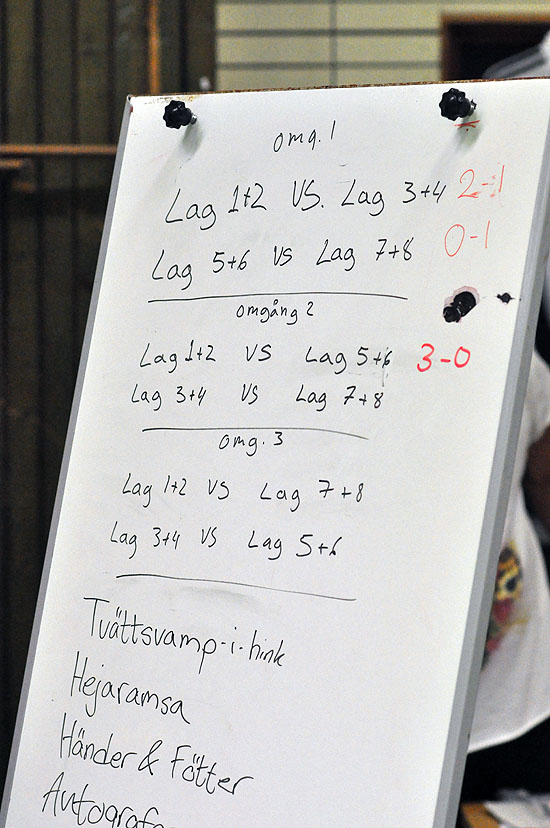 omg. 1
Lag 1+2 VS. Lag 3+4 2-1
Lag 5+6 VS Lag 7+8 0-1
omgång 2
Lag 1+2 VS Lag 5+6 3-0
Lag 3+4 VS Lag 7+8
omg. 3
Lag 1+2 VS Lag 7+8
Lag 3+4 VS Lag 5+6
Tvättsvamp-i-hink
Hejaramsa
Händer & Fötter